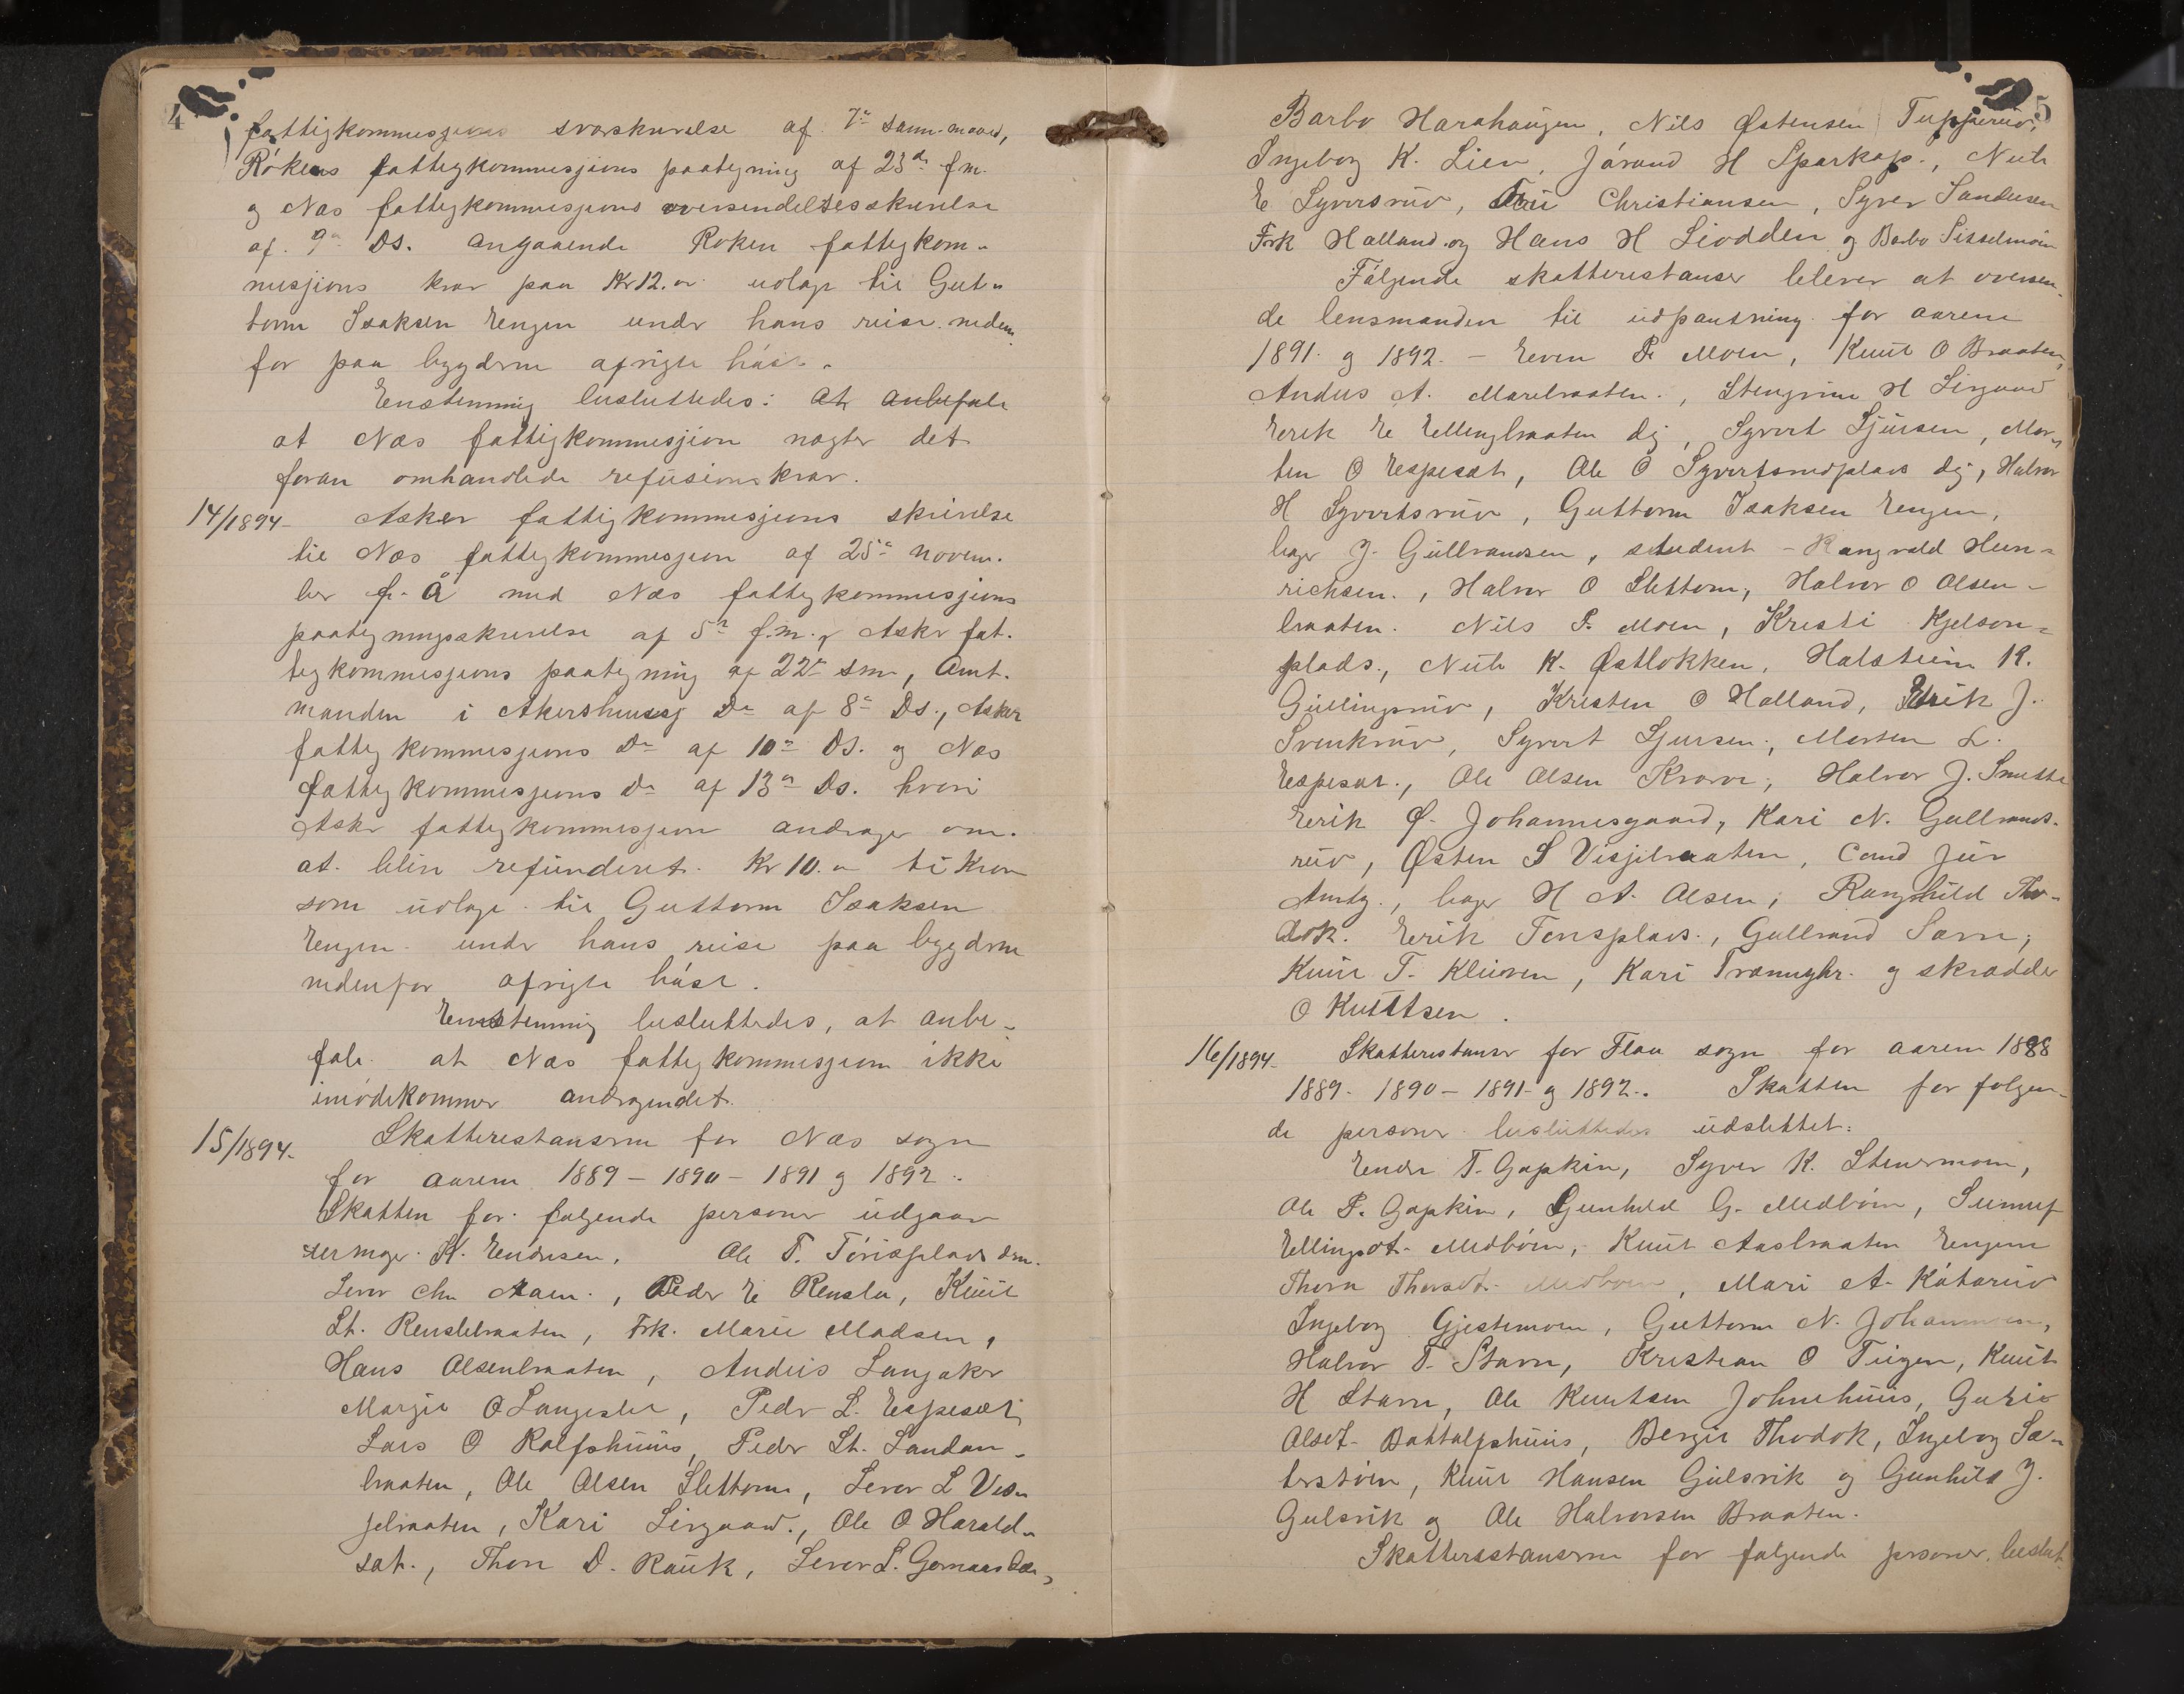 4
fattigkommisjons svarskrivelse af 7de samme maaned,
Røkens fattigkommisjons paategning af 23de f.m.
og Næs fattigkommisjons oversendelsesskrivelse
af 9de Ds. angaaende Røken fattigkom-
misjons krav paa Kr 12.00 udlagt til Gut-
torm Isaksen Engen under hans reise neden-
for paa bygderne afvigte høst.
Enstemmig besluttedes: At anbefale
at Næs fattigkommisjion nægter det
foran omhandlede refusionskrav.
14/1894- Asker fattigkommisjons skrivelse
til Næs fattigkommisjon af 25de novem-
ber f. Å med Næs fattigkommisjions
paategningsskrivelse af 5te f.m., Asker fat-
tigkommisjons paategning af 22de sm, Amt-
manden i Akershuus Do af 8de Ds., Asker
fattigkommisjons Do af 10de Ds. og Næs
fattigkommisjons Do af 13de Ds. hvori
Asker fattigkommisjon andrager om
at blive refunderet Kr 10.00 ti Kroner
som udlagt til Guttorm Isaksen
Engen under hans reise paa bygderne
nedenfor afvigte høst.
Enstemmig besluttedes, at anbe-
fale at Næs fattigkommisjion ikke
imødekommer andragendet.
15/1894. Skatterestanserne for Næs sogn
for aarene 1889 - 1890 - 1891 og 1892.
Skatten for følgende personer udgaar
K. Endresen, Ole T. Torisplads
Lever Chr Moen., Peder E Rensla, Knut
St. Renslebraaten, Frk. Marie Madsen,
Hans Olsenbraaten, Andris Langaker
Margit O Langeslet, Peder L. Espeset,
Lars O Rolfshuus, Peder St. Sandan-
braaten, Ole Olsen Slettom, Lever L Ves-
jebraaten, Kari Lirgaard., Ole O Harald-
set., Thore D. Rauk, Lever L.
5
Barbo Harahaugen, Nils Østensen Tupperud,
Ingeborg K. Lien, Jørand H Sparkap., Nub
E Syversrud, Fru Christiansen, Syver Sandersen
Frk Halland og Hans H Liodden og Barbo Sisselmoen
Følgende skatterestanser blever at oversen-
de lensmanden til udpantning for aarene
1891. og 1892. - Even P. Moen, Knut O Braaten,
Andus A. Marebraaten., Stengrim H Lirgaard
Eerik E Ellingbraaten dy, Syvert Sjursen, Mor-
ten O Espeset, Ole O Syvertsrudplads dy, Halvor
H Syvertsrud, Guttorm Isaksen Engen,
bager J. Gulbrandsen, student - Rangvald Hen-
richsen., Halvor O Slettom, Halvor O Olsen-
braaten. Nils P. Moen, Kristi Kjelson-
plads., Nub K. Østlokken, Halstein K.
Gullingsrud, Kristen O Halland, Erik J.
Svenkrud, Syvert Sjursen., Morten L.
Espeset., Ole Olsen Kroven, Halvor J. Smette
Eerik Ø. Johannesgaard, Kari N. Gulbrands-
rud, Østen S Visjebraaten, Cand jur
., bager H A. Olsen, Ranghild Tho-
dok. Eerik Tonsplads., Gulbrand Sarn,
Knut T. Kleiven, Kari Trommyhr. og skrædder
O Knuttsen.
16/1894- Skatterestanser for Flaa sogn for aarene 1888
1889 - 1890 - 1891 og 1892. Skatten for følgen-
de personer besluttedes udslettet:
Endre T. Gapkin, Syver K. Stenersmoen,
Ole P. Gapkin, Gunhild G. Medbøen, Sunnef
Ellingsdt. Medbøen, Knut Aasbraaten Engene
Thora Thorsdt. Medboen, Mari A. Køtarud
Ingeborg Gjestemoen, Guttorm N. Johannesen,
Halvor T. Stavn, Kristian O Teigen, Knut
H Stavn, Ole Knutsen Johnehuus, Guri
Olsdt. Bottolfshuus, Bergit Thodok, Ingeborg Sæ-
terstøen, Knut Hansen Gulsvik og Gunhild J.
Gulsvik og Ole Halvorsen Braaten.
Skatterestanserne for følgende personer beslut-